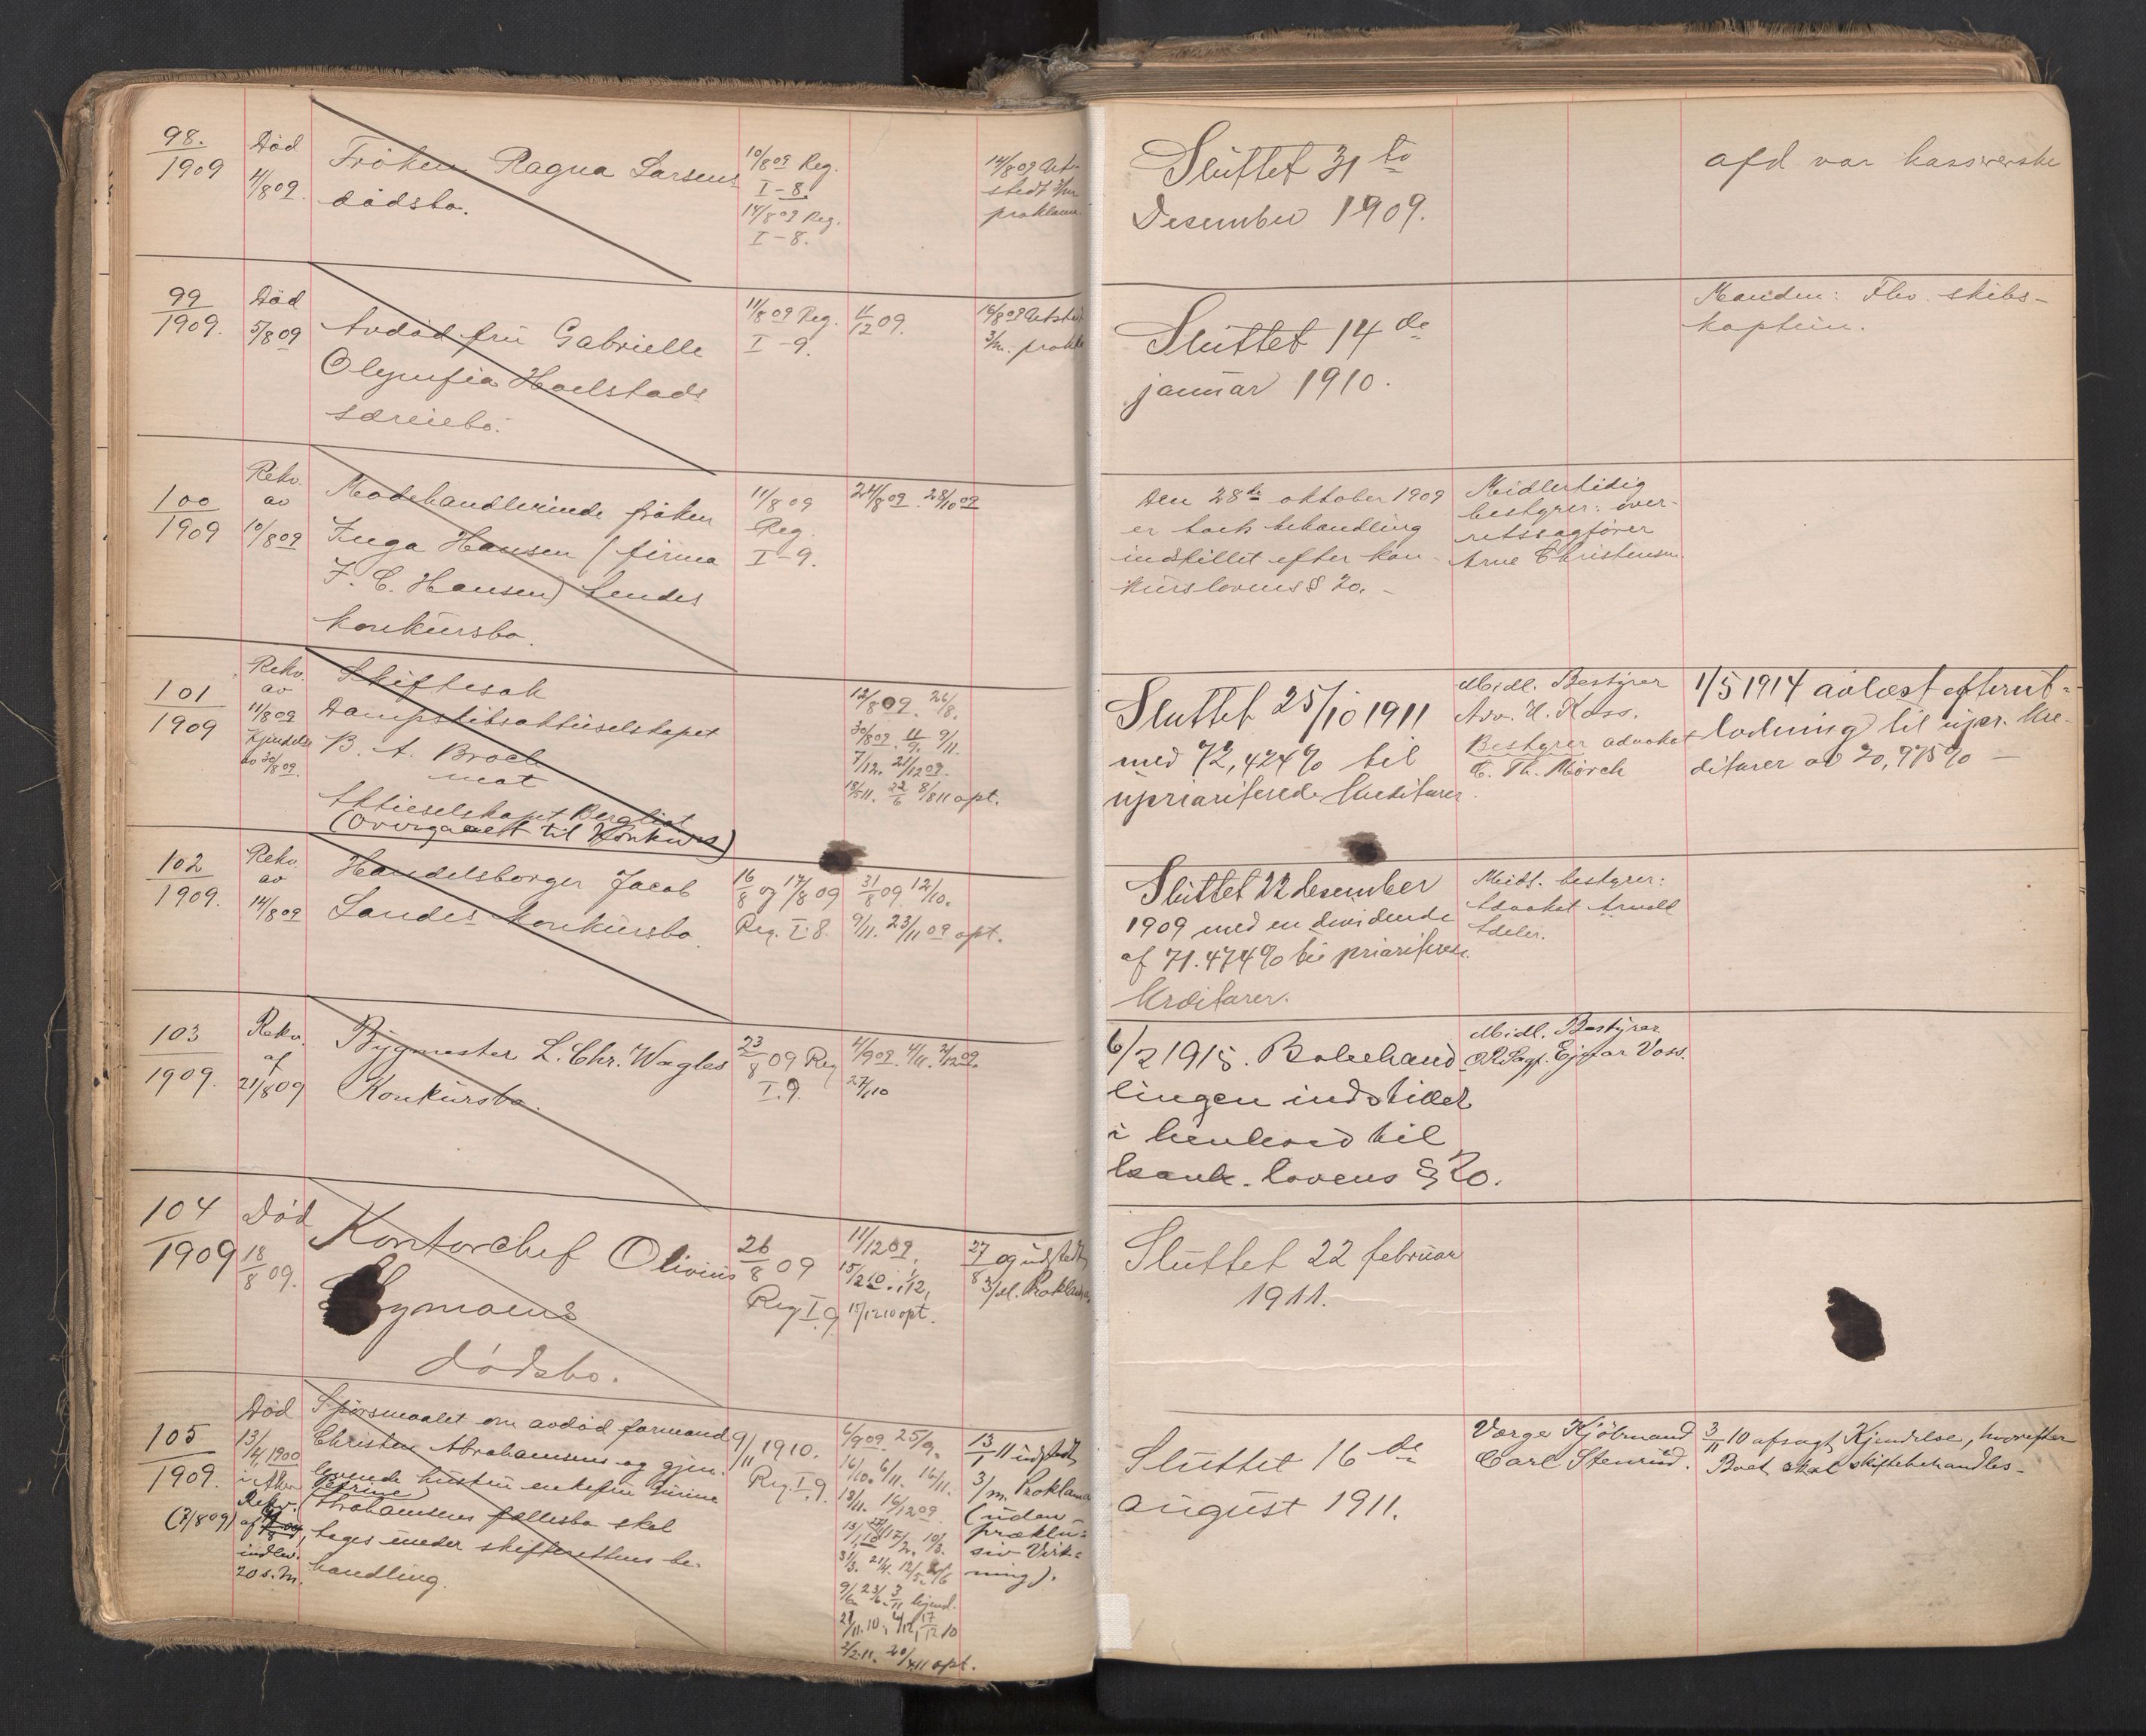 98.
1909
Död
4/8 09.
Fröken Ragna Larsens
dödsbo.
10/8 09 Reg.
I-8.
14/8 09 Reg.
I-8.
14/8 09 Ut-
stedt 3/m
proklam.
Sluttet 31 te
Desember 1909.
afd var kassererske
99
1909.
Död
5/8 09
Avdöd fru Gabrielle
Olympia Hoelstads
særeiebo.
11/8 09 Reg.
I-9.
11/12 09.
14/8 09 Utstedt
3/m. prokla
Sluttet 14 de
januar 1910.
Manden: Fhv. skibs-
kaptein.
100
1909
Rekv.
av
10/8 09
Modehandlerinde fröken
Inga Hansen (firma
I. C. Hansen) Sendes
konkursbo.
11/8 09
Reg.
I-9.
24/8 09. 28/10 09
Den 28de oktober 1909
er boets behandling
indstillet efter kon-
kurslovens § 20. -
Midlertidig
bestyrer: over-
retssagförer
Arne Christensen.
101
1909
Rekv.
av
11/8 09
Kjendelse
av 30/8 09.
Skiftesak
Dampskibsaktieselskapet
B. A. Broch
mot
Aktieselskapet Bergliot
(Overgaaet til Konkurs)
12/8 09. 26/8.
30/8 09. 11/9. 9/11.
7/12. 21/12 09.
18/5 11. 22/6 8/8 11 opt.
Sluttet 25/10 1911
med 72,424% til
upriariterede Kreditorer.
Midl. Bestyrer
Adv. H. Kass.
Bestyrer advokat
C. Th. Mörch
1/5 1914 avlæst efterut-
lodning til upr. Kre-
ditorer av 20,975% -
102
1909.
Rekv.
av
14/8 09
Handelsborger Jacob
Landes konkursbo.
16/8 og 17/8 09
Reg. I.8.
31/8 09. 12/10.
9/11. 23/11 09 opt.
Sluttet 22 desember
1909 med en dividende
af 71.474% til prioriterede
Kreditorer.
Midl. bestyrer:
Advokat Arnold
Adeler.
103
1909.
Rekv.
af
21/8 09
Bygmester L. Chr. Wagles
Konkursbo.
23/8 09 Reg
I.9.
4/9 09. 4/11. 2/12 09.
27/1 10
6/2 1915. Bobehand-
lingen indstillet
i henhold til
konk. lovens § 20.
Midl. Bestyrer
ORSagf. Ejnar Voss.
104
1909
Död
18/8 09.
Kontorchef Olivius
Nymoens
dödsbo.
26/8 09
Reg I.9
11/12 09,
15/2 10. 1/12,
15/12 10 opt.
27/8 og udstedt
3/M. Proklama
Sluttet 22 februar
1911.
105
1909.
(7/8 09)
Död
13/4 1900
Rekv.
af
indlev.
20 s. M.
Spörsmaalet om avdöd formand
Christen Abrahamsens og gjen-
levende hustru enkefru Gurine
Petrine)
(Abrahamsens fællesbo skal
tages under skifterettens be-
handling.
9/11 1910.
Reg. I.9.
6/9 09. 25/9.
16/10. 6/11. 16/11.
18/11. 16/12 09.
13/1 10 17/2. 10/3.
31/3. 21/4. 12/5. 2/6
9/6. 23/6. 3/11 kjend.
21/11.10. 4/12, 17/12 10
2/2 11. 20/4 11 opt.
13/1 11 udstedt
3/m. Proklama
(uden
præklu-
siv Virk-
ning).
Sluttet 16 de
august 1911.
Værge Kjöbmand
Carl Stenrud.
3/11 10 afsagt Kjendelse, hvorefter
Boet skal skiftebehandles-